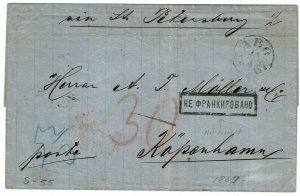 via St. Petersburg 2
Herrn A. T. Möller & Co:
30
НЕ ФРАНКИРОВАНО
porto Köpenhamn
S-55 1867